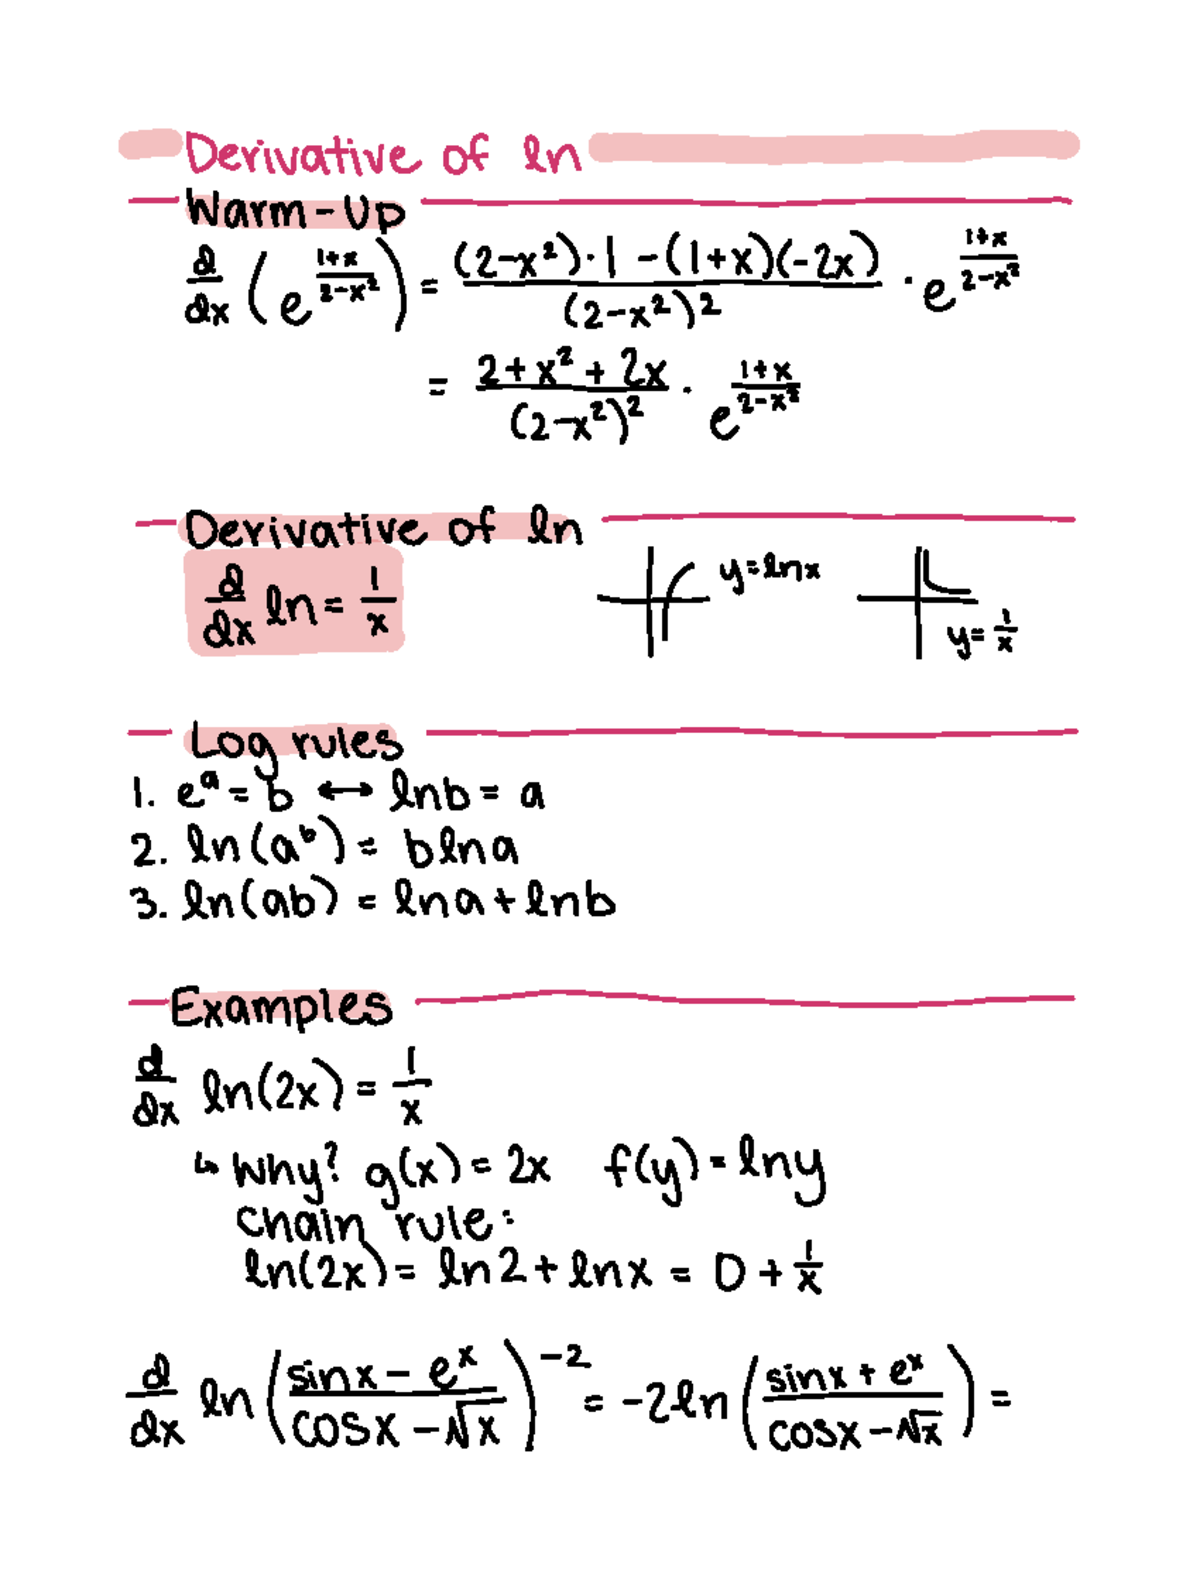 Derivative of ln
Warm-Up
d/dx (e^((1+x)/(2-x²))) = ((2-x²)·1 - (1+x)(-2x))/(2-x²)² · e^((1+x)/(2-x²))
= (2+x²+2x)/(2-x²)² · e^((1+x)/(2-x²))
Derivative of ln
d/dx ln = 1/x
y=lnx
y=1/x
Log rules
1. e^a = b ↔ lnb = a
2. ln(a^b) = blna
3. ln(ab) = lna + lnb
Examples
d/dx ln(2x) = 1/x
↳ Why? g(x) = 2x f(y) = lny
Chain rule:
ln(2x) = ln2 + lnx = 0 + 1/x
d/dx ln((sinx - e^x)/(cosx - √x))^-2 = -2ln((sinx + e^x)/(cosx - √x)) =